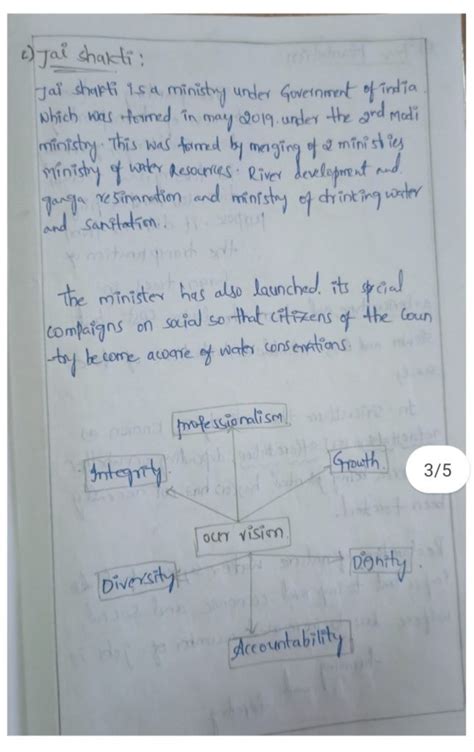 c) Jai shakti :
Jai shakti is a ministry under Government of india
which was formed in may 2019. under the 2nd Modi
ministry. This was formed by merging of 2 ministies
ministry of water Resources. River development and
ganga and ministry of drinking water
and sanitation.
the minister has also launched. its special
compaigns on social so that citizens of the coun
-try become aware of water conservations
professionalism
Integrity.
Growth.
3/5
our vision.
Diversity
Dignity.
Accountability